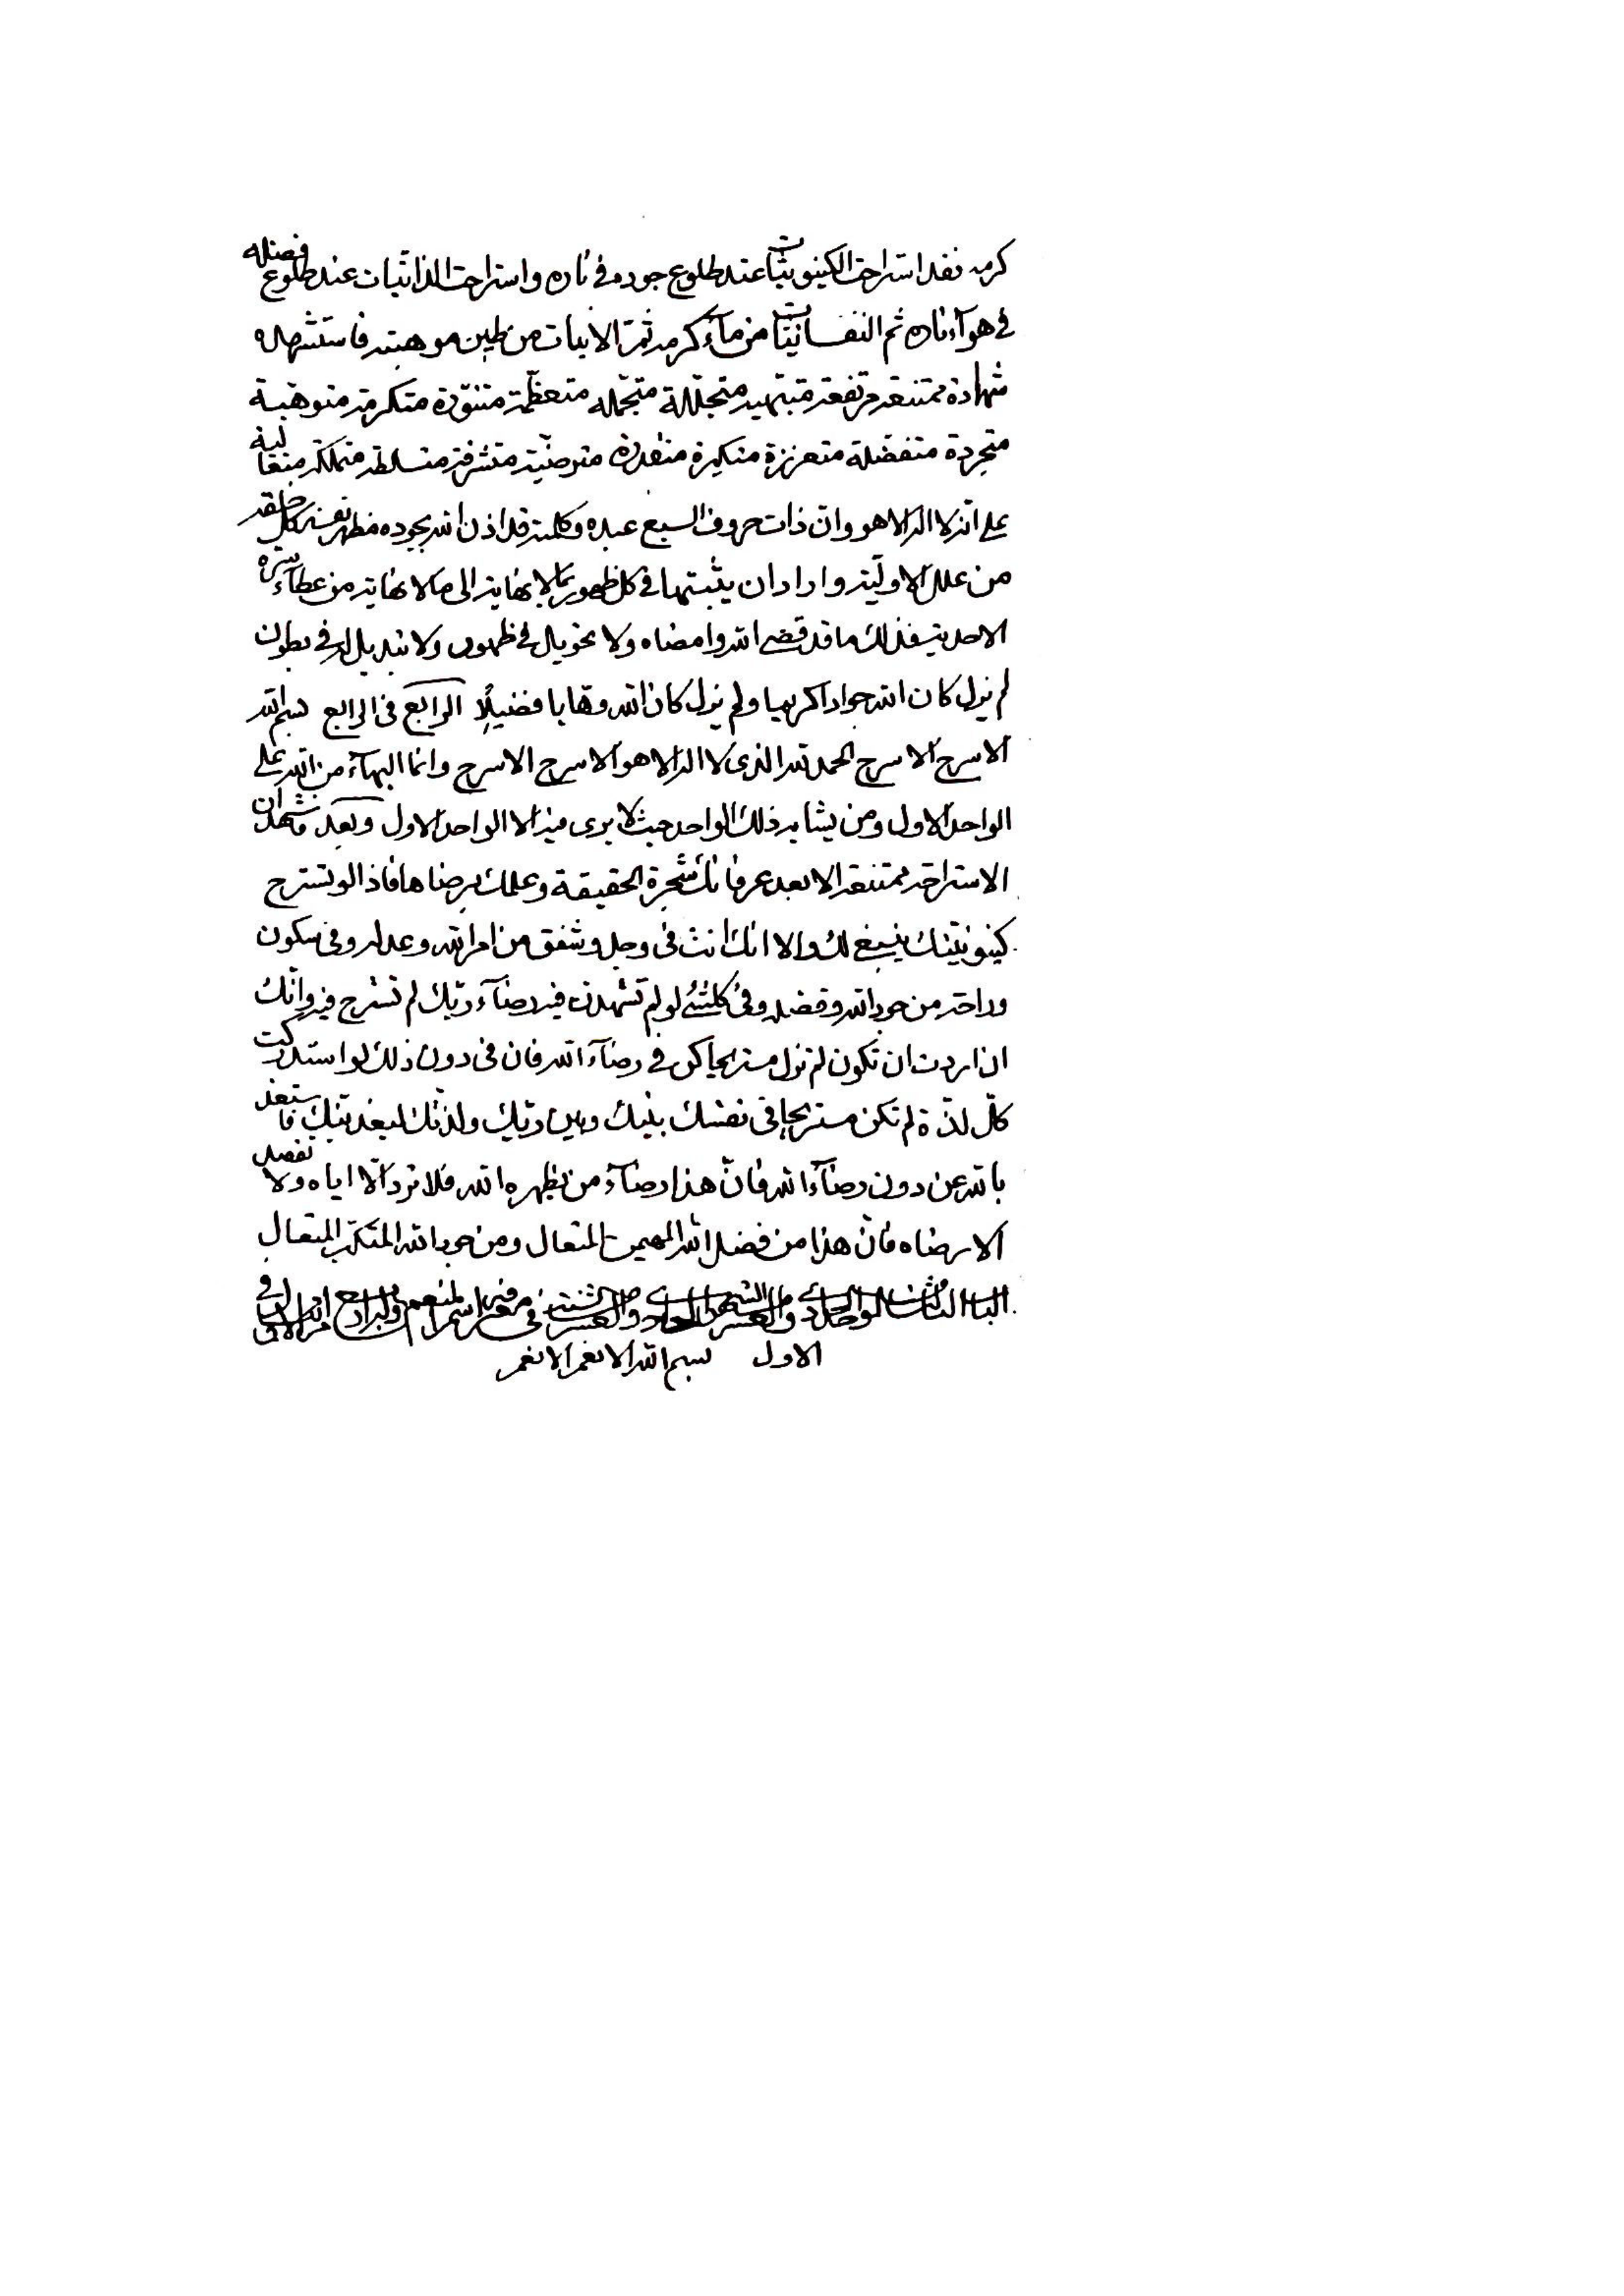 كرمه فقد استراحت الكينونيات عند طلوع جوده في ناره واستراحت الذاتيات عند طلوع فضله
في هوآء ناره ثم النفسانيات من مآء كرمه ثم الانيات من طين موهبته فاستشهاله
شهادة ممتنعة مرتفعة مبتهية متجللة متجمله متعظمة متنورة متكرمة متوهبة
متجردة متفضلة متعززة متكبرة متقدرة مترضية متشرفة متسلطة متملكة متعالية
على انه لا اله الا هو وان ذات حروف السبع عبده وكلمته قد اذن الله بجوده مظهر نفسه كل خلقه
من علل الاولية واراد ان يثبتها في كل ظهور بما لا نهاية الى ما لا نهاية من عطآء سره
الاحدية فذلك ما قد قضى الله وامضاه ولا تحويل له في ظهور ولا تبديل له في بطون
لم يزل كان الله جوادا كريما ولم يزل كان الله وهابا فضيلا الرابع في الرابع بسم الله
الاسرح الاسرح الحمد لله الذى لا اله الا هو الاسرح الاسرح وانما البهآء من الله على
الواحد الاول ومن يشابه ذلك الواحد حيث لا يرى فيه الا الواحد الاول وبعد فاشهد ان
الاستراحة ممتنعة الا بعد عرفانك شجرة الحقيقة وعلمك برضاها فاذا لو تسترح
كينونيتك ينبغي لك والا انك انت في وجل وشفق من امر الله وعدله وفي سكون
وراحة من جود الله وفضله وفي كلشئ لو لم تشهدن فيه رضآء ربك لم تسترح فيه وانك
ان اردت ان تكون لم تزل مستريحا كن في رضآء الله فان في دون ذلك لو استدركت
كل لذة لم تكن مستريحا في نفسك بينك وبين ربك ولذتك ليعذبنك فاستعذ
بالله عن دون رضآء الله فان هذا رضآء من يظهره الله فلا ترد الا اياه ولا تفصد
الا رضاه فان هذا من فضل الله المهيمن المتعال ومن جود الله المتكبر المتعال
الاول بسم الله الانعم الانعم